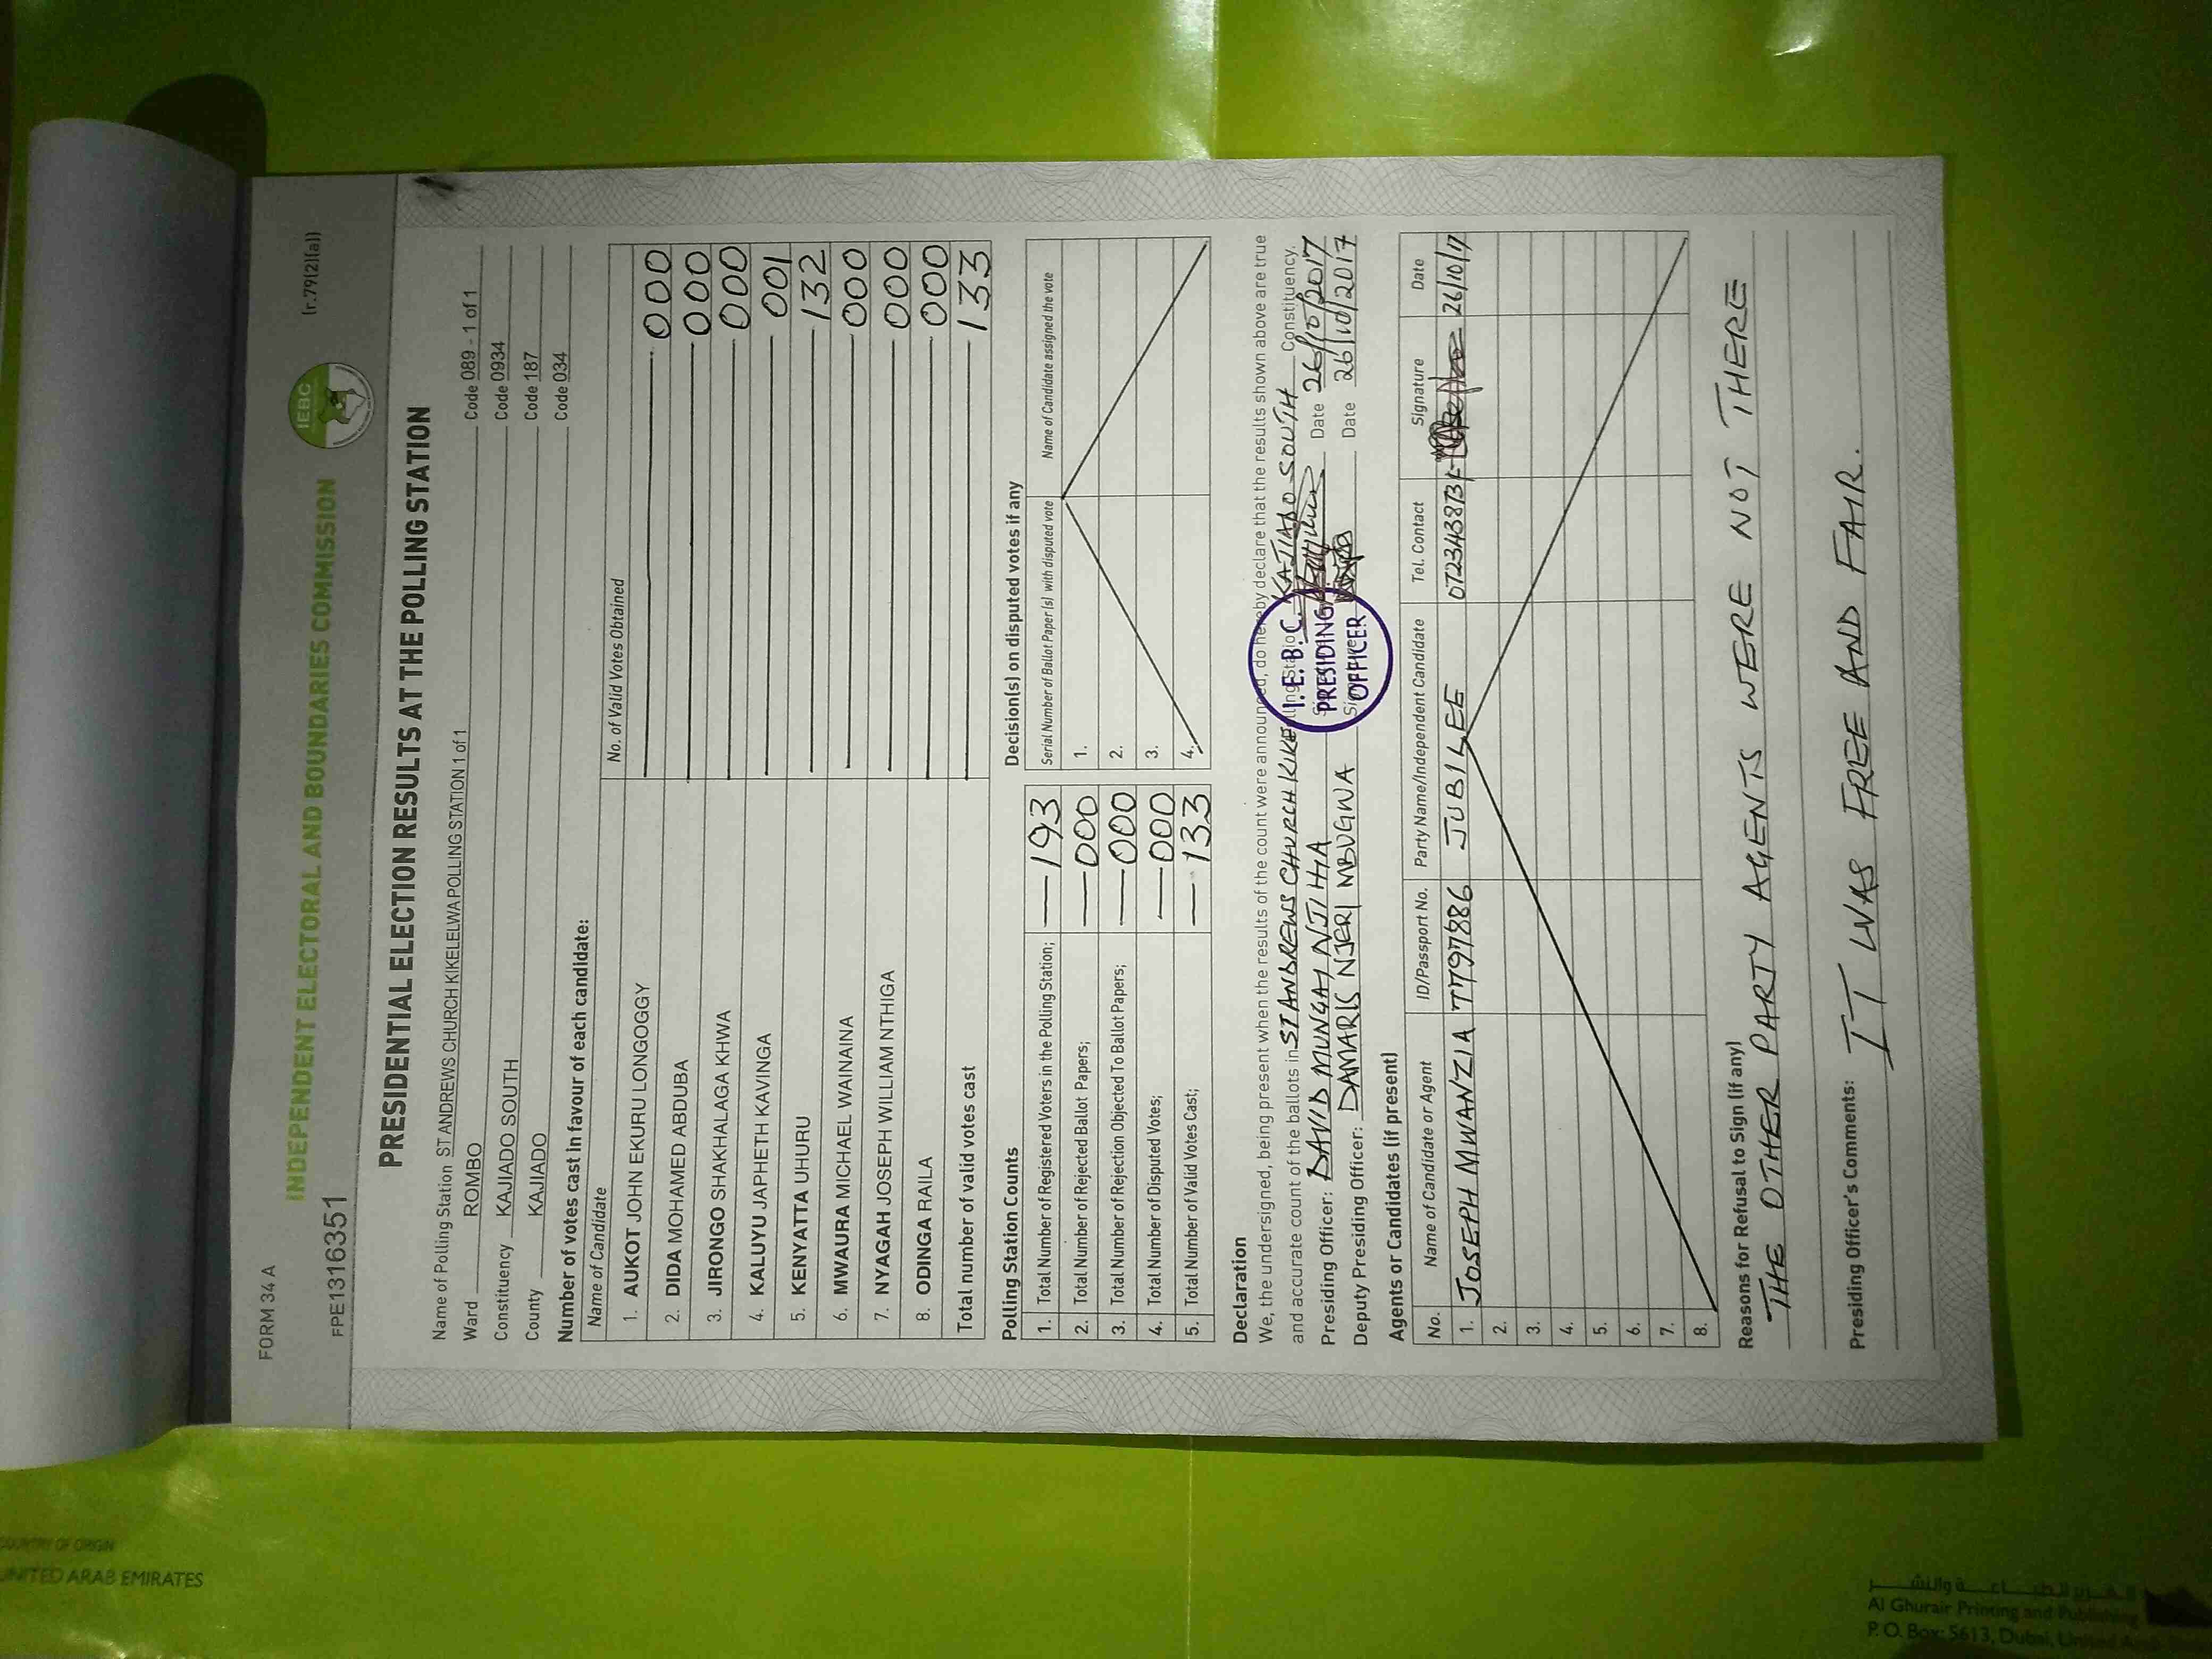 FORM 34 A
(r.79(2)(a))
IEBC
INDEPENDENT ELECTORAL AND BOUNDARIES COMMISSION
FPE1316351
PRESIDENTIAL ELECTION RESULTS AT THE POLLING STATION
Name of Polling Station ST ANDREWS CHURCH KIKELELWA POLLING STATION 1 of 1 Code 089 - 1 of 1
Ward ROMBO Code 0934
Constituency KAJIADO SOUTH Code 187
County KAJIADO Code 034
Number of votes cast in favour of each candidate:
Name of Candidate No. of Valid Votes Obtained
1. AUKOT JOHN EKURU LONGOGGY 000
2. DIDA MOHAMED ABDUBA 000
3. JIRONGO SHAKHALAGA KHWA 000
4. KALUYU JAPHETH KAVINGA 001
5. KENYATTA UHURU 132
6. MWAURA MICHAEL WAINAINA 000
7. NYAGAH JOSEPH WILLIAM NTHIGA 000
8. ODINGA RAILA 000
Total number of valid votes cast 133
Polling Station Counts
1. Total Number of Registered Voters in the Polling Station; 193
2. Total Number of Rejected Ballot Papers; 000
3. Total Number of Rejection Objected To Ballot Papers; 000
4. Total Number of Disputed Votes; 000
5. Total Number of Valid Votes Cast; 133
Decision(s) on disputed votes if any
Serial Number of Ballot Paper(s) with disputed vote Name of Candidate assigned the vote
1.
2.
3.
4.
Declaration
We, the undersigned, being present when the results of the count were announced, do hereby declare that the results shown above are true
and accurate count of the ballots in ST ANDREWS CHURCH KIKE KAJIADO SOUTH Constituency.
Presiding Officer: DAVID MUNGAI NJIHIA Date 26/10/2017
Deputy Presiding Officer: DAMARIS NJERI MBUGWA Date 26/10/2017
I.E.B.C.
PRESIDING
OFFICER
Agents or Candidates (if present)
No. Name of Candidate or Agent ID/Passport No. Party Name/Independent Candidate Tel. Contact Signature Date
1. JOSEPH MWANZIA 7797886 JUBILEE 26/10/17
2.
3.
4.
5.
6.
7.
8.
Reasons for Refusal to Sign (if any)
THE OTHER PARTY AGENTS WERE NOT THERE
Presiding Officer's Comments:
IT WAS FREE AND FAIR.
COUNTRY OF ORIGIN
UNITED ARAB EMIRATES
Al Ghurair Printing and Publishing
P.O. Box: 5613, Dubai, United